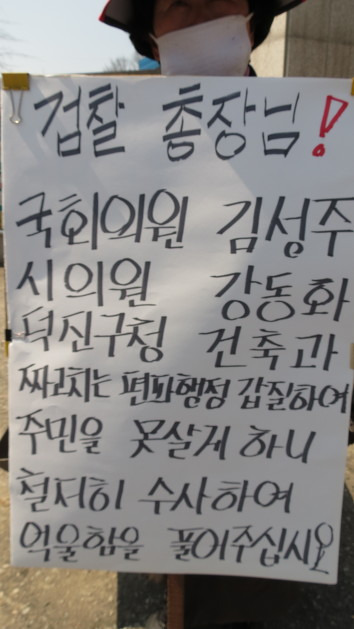 검찰 총장님!
국회의원 김성주
시의원 강동화
덕진구청 건축과
짜고치는 편파행정 갑질하여
주민을 못살게 하니
철저히 수사하여
억울함을 풀어주십시오